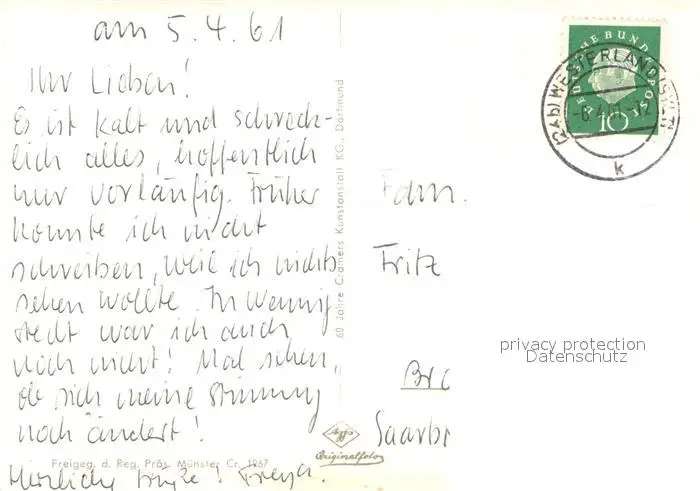 am 5.4.61
Ihr Lieben!
Es ist kalt und schreck-
lich alles, hoffentlich
nur vorläufig. Früher
konnte ich nicht
schreiben, weil ich nichts
sehen wollte. In Wennig
stedt war ich auch
noch nicht! Mal sehen,
ob sich meine Stimmung
noch ändert!
Herzliche Grüße! Freya.
Freigeg. d. Reg. Präs. Münster Cr. 1967
60 Jahre Cramers Kunstanstalt KG., Dortmund
Agfa
Originalfoto
DEUTSCHE BUNDESPOST
10
(24b) WESTERLAND (SYLT)
k
Fam.
Fritz
privacy protection
Datenschutz
Saarbr